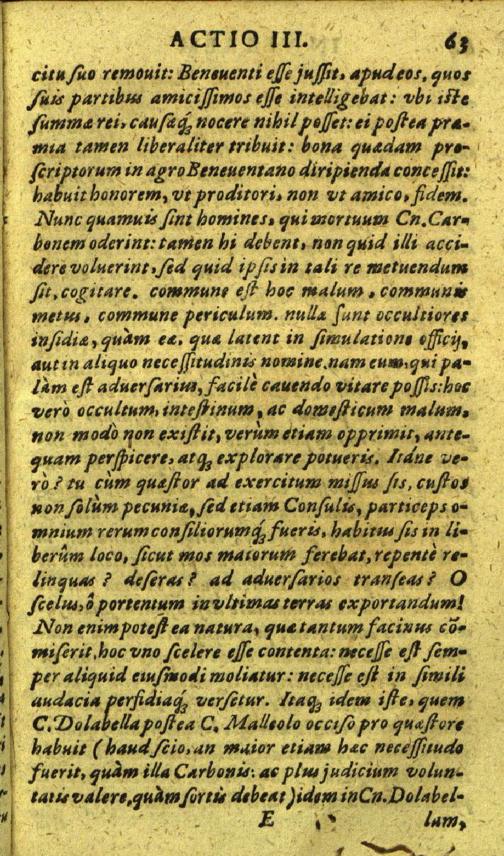 ACTIO III. 63
citu suo remouit: Beneuenti esse jussit, apud eos, quos
suis partibus amicissimos esse intelligebat: vbi iste
summæ rei, causæq́; nocere nihil posset: ei postea præ-
mia tamen liberaliter tribuit: bona quædam pro-
scriptorum in agro Beneuentano diripienda concessit:
habuit honorem, vt proditori, non vt amico, fidem.
Nunc quamuis sint homines, qui mortuum Cn. Car-
bonem oderint: tamen hi debent, non quid illi acci-
dere voluerint, sed quid ipsis in tali re metuendum
sit, cogitare. commune est hoc malum, communis
metus, commune periculum. nullæ sunt occultiores
insidiæ, quàm eæ, quæ latent in simulatione officij,
aut in aliquo necessitudinis nomine. nam eum, qui pa-
làm est aduersarius, facilè cauendo vitare possis: hoc
verò occultum, intestinum, ac domesticum malum,
non modò non existit, verùm etiam opprimit, ante-
quam perspicere, atq; explorare potueris. Itáne ve-
rò? tu cùm quæstor ad exercitum missus sis, custos
non solùm pecuniæ, sed etiam Consulis, particeps o-
mnium rerum consiliorumq́; fueris, habitus sis in li-
berûm loco, sicut mos maiorum ferebat, repentè re-
linquas? deseras? ad aduersarios transeas? O
scelus, ô portentum in vltimas terras exportandum!
Non enim potest ea natura, quæ tantum facinus cō-
miserit, hoc vno scelere esse contenta: necesse est sem-
per aliquid eiusmodi moliatur: necesse est in simili
audacia perfidiaq́; versetur. Itaq; idem iste, quem
C. Dolabella postea C. Malleolo occiso pro quæstore
habuit (haud scio, an maior etiam hæc necessitudo
fuerit, quàm illa Carbonis: ac plus judicium volun-
tatis valere, quàm sortis debeat) idem in Cn. Dolabel-
E lam,